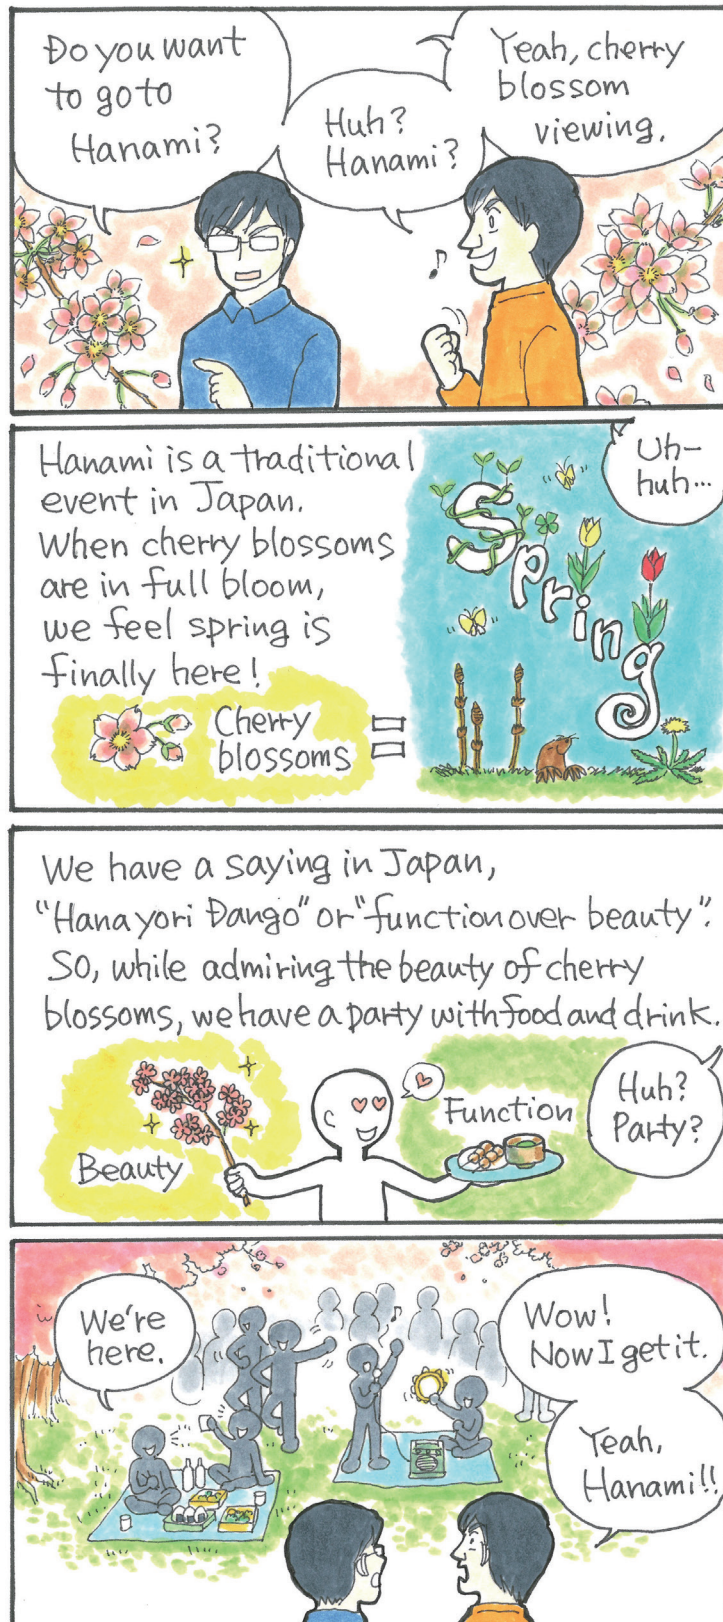 Do you want
to go to
Hanami?
Huh?
Hanami?
Yeah, cherry
blossom
viewing.
Hanami is a traditional
event in Japan.
When cherry blossoms
are in full bloom,
we feel spring is
finally here!
Cherry
blossoms
=
Spring
Uh-
huh...
We have a saying in Japan,
"Hana yori Dango" or "function over beauty".
So, while admiring the beauty of cherry
blossoms, we have a party with food and drink.
Beauty
Function
Huh?
Party?
We're
here.
Wow!
Now I get it.
Yeah,
Hanami!!